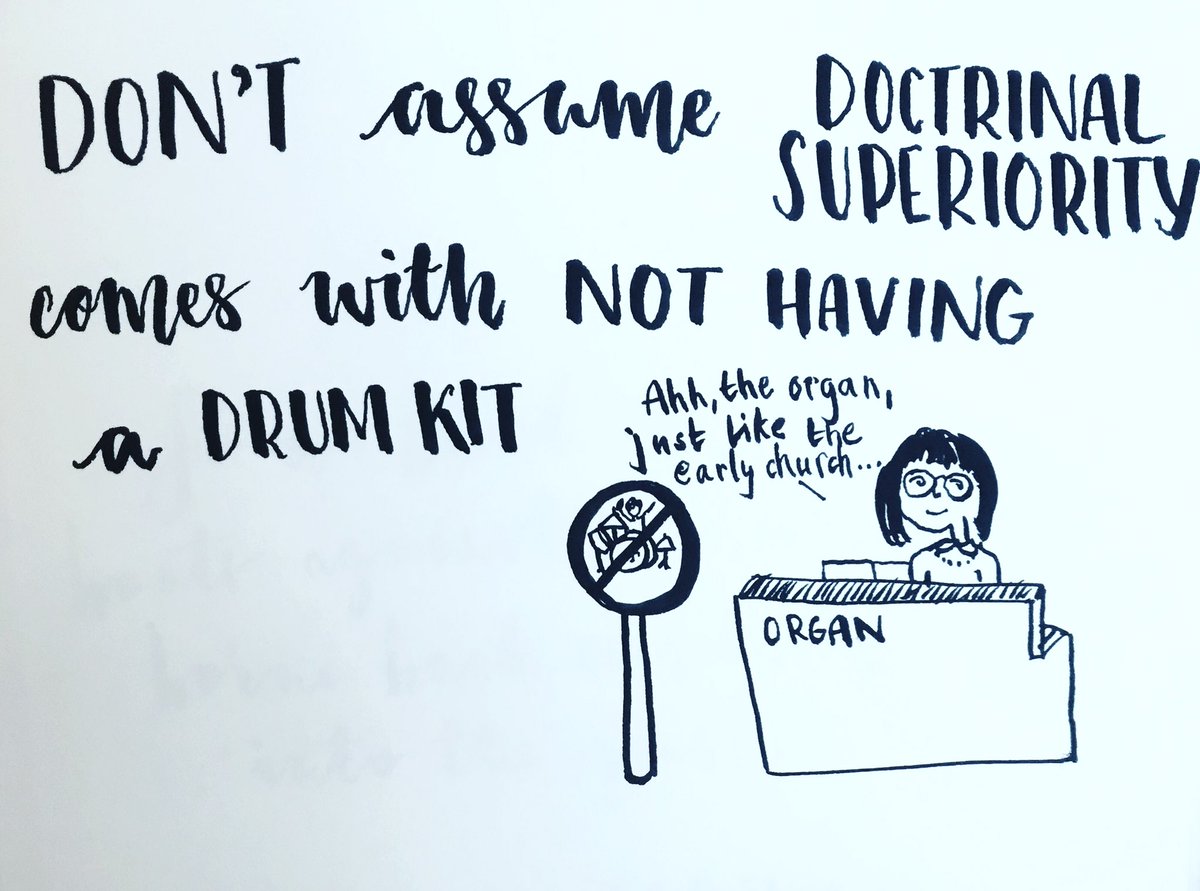 DON'T assume DOCTRINAL
SUPERIORITY
comes with NOT HAVING
a DRUM KIT
Ahh, the organ,
just like the
early church...
ORGAN